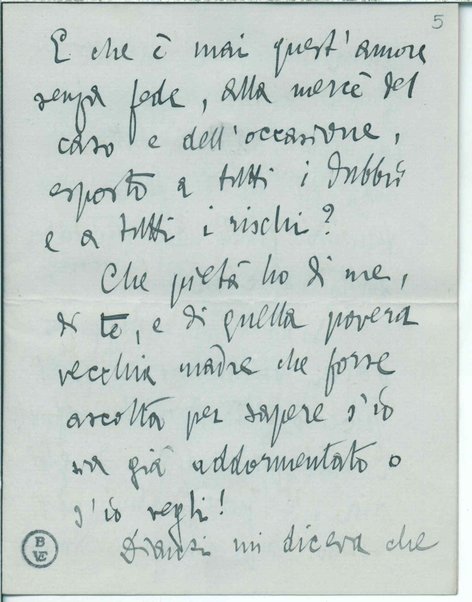 5
E che è mai quest'amore
senza fede, alla mercè del
caso e dell'occasione,
esposto a tutti i dubbii
e a tutti i rischi?
Che pietà ho di me,
di te, e di quella povera
vecchia madre che forse
ascolta per sapere s'io
sia già addormentato o
s'io vegli!
Dianzi mi diceva che
B
VE